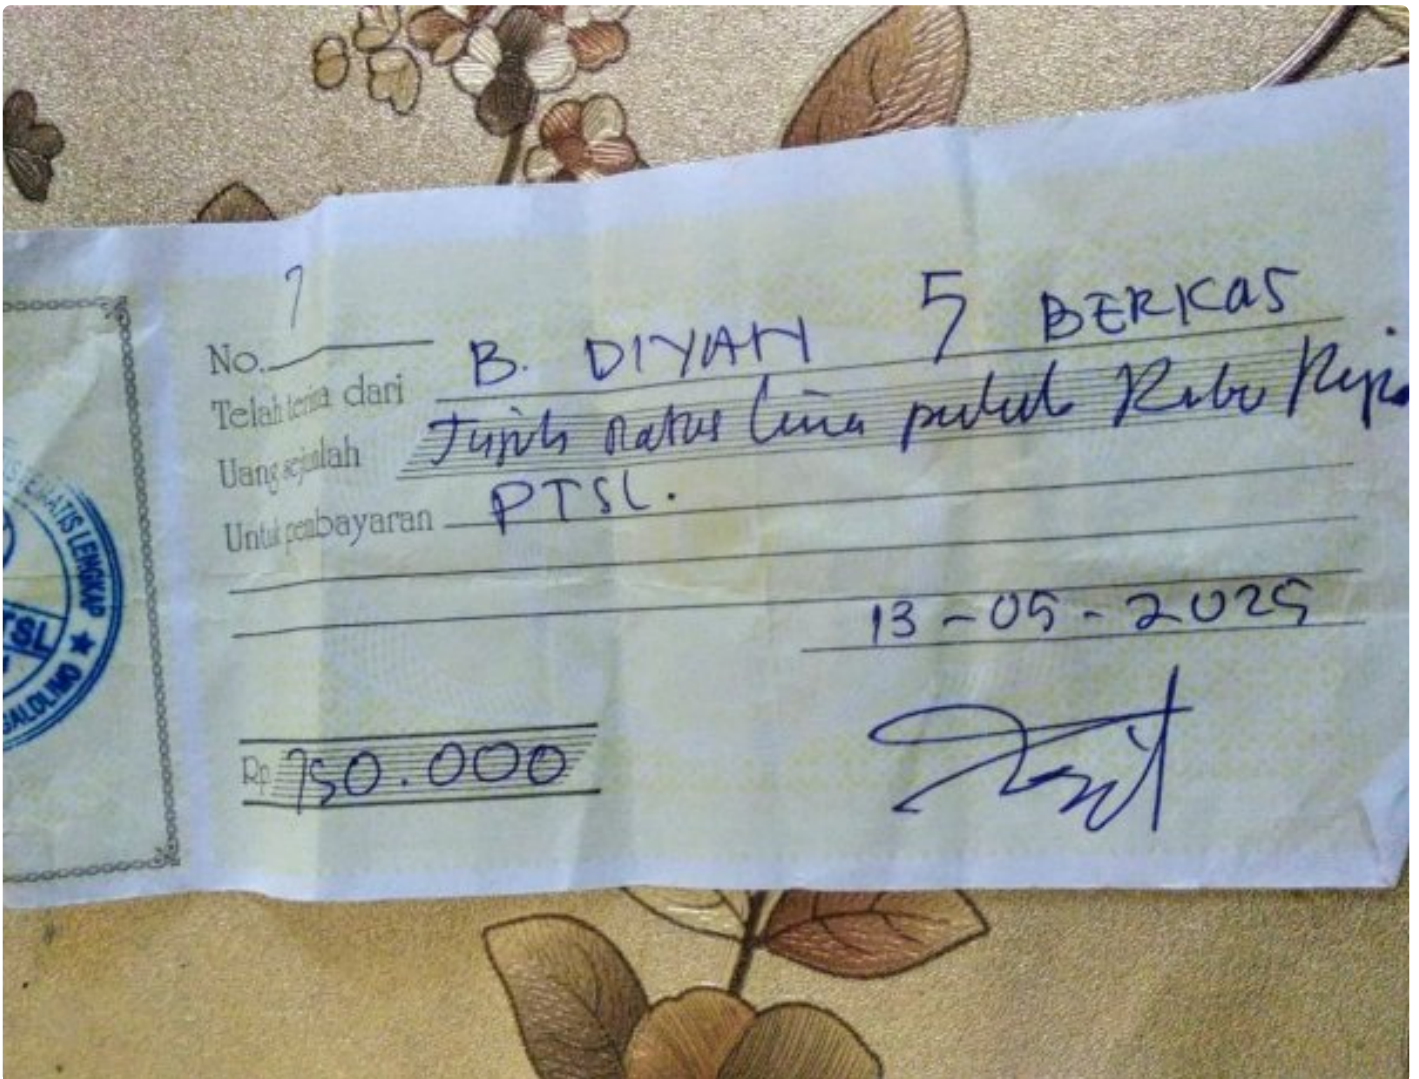 No. 7
Telah terima dari B. DIYAH 5 BERKAS
Uang sejumlah Tujuh ratus lima puluh Ribu Rupia
Untuk pembayaran PTSL.
13-05-2025
Rp 750.000
EMATIS LENGKAP ★
TSL
GALDLIMO